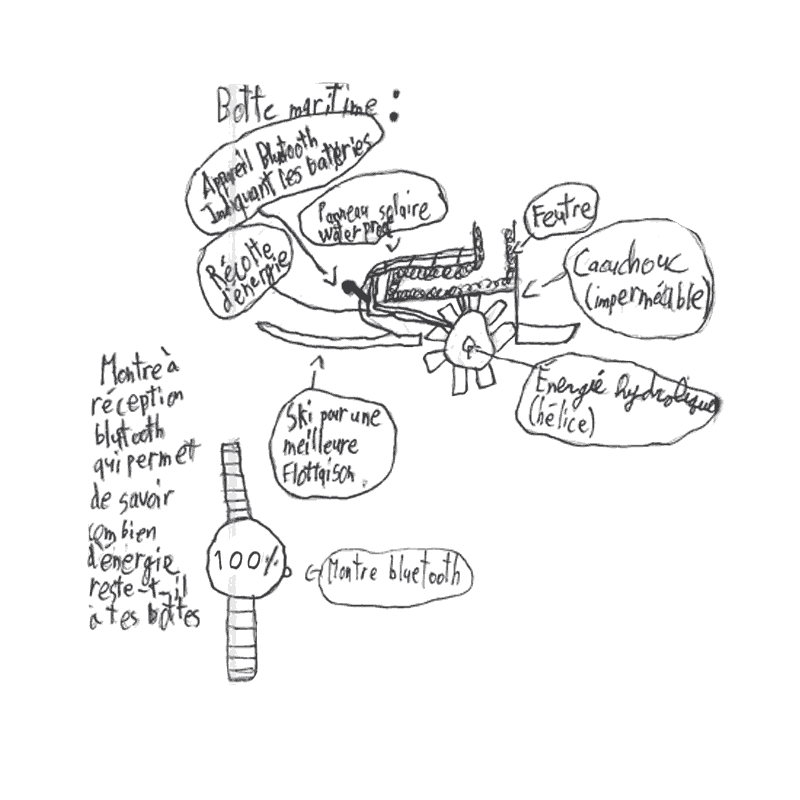 Botte maritime :
Appareil Blutooth
Indiquant les battéries
Panneau solaire
waterproof
Feutre
Récolte
d'énergie
Caouchouc
(imperméable)
Énergié hydrolique
(hélice)
Ski pour une
meilleure
Flottaison.
Montre à
réception
blutooth
qui permet
de savoir
combien
d'énergie
reste-t-il
à tes bottes
100%
Montre bluetooth